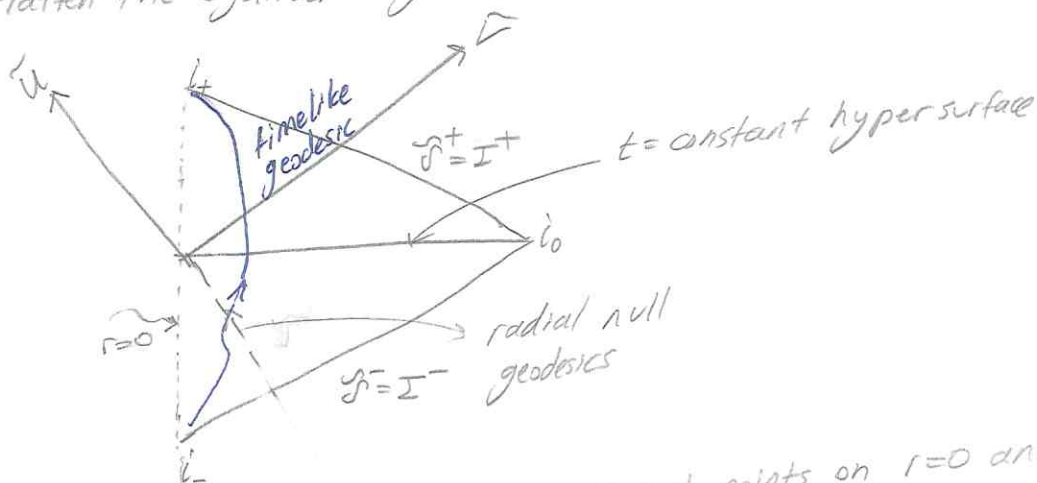 flatten the cylinder
ũ
i₊
timelike
geodesic
𝓘⁺=I⁺
t=constant hypersurface
i₀
r=0
radial null
geodesics
𝓘⁻=I⁻
i₋
points on r=0 an